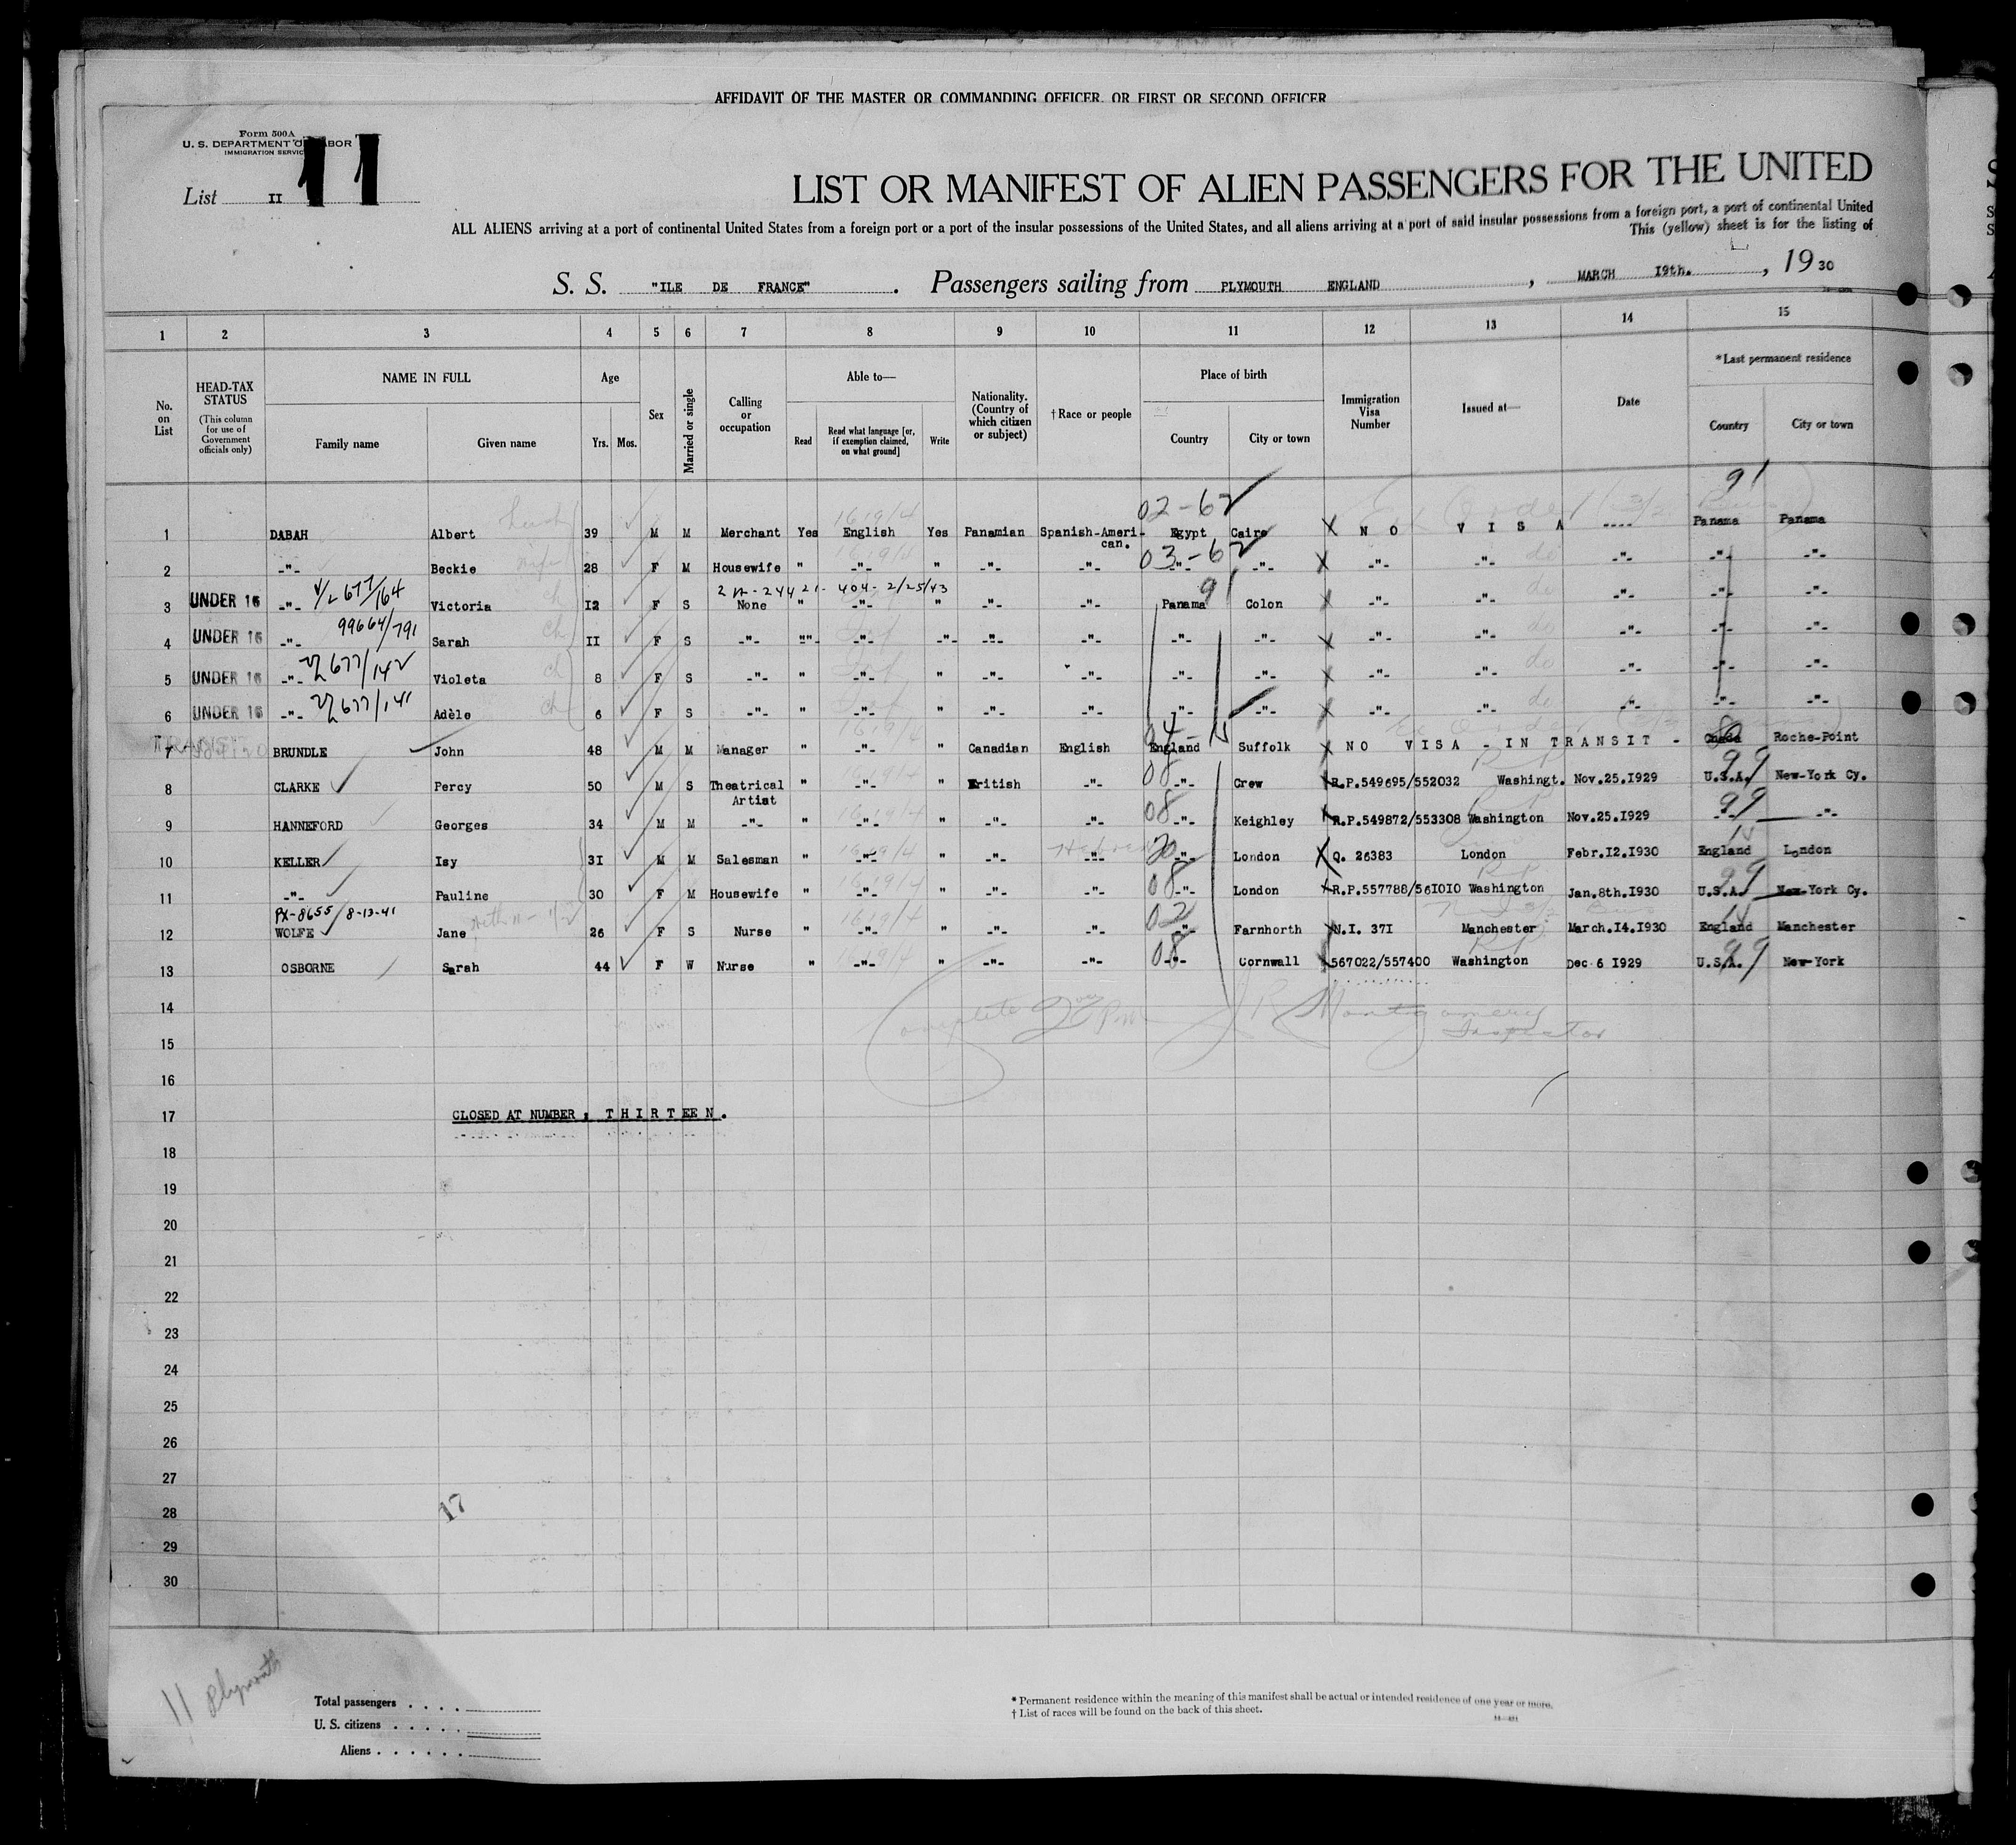 AFFIDAVIT OF THE MASTER OR COMMANDING OFFICER, OR FIRST OR SECOND OFFICER
Form 500A
U. S. DEPARTMENT OF LABOR
IMMIGRATION SERVICE
List II 11
LIST OR MANIFEST OF ALIEN PASSENGERS FOR THE UNITED
ALL ALIENS arriving at a port of continental United States from a foreign port or a port of the insular possessions of the United States, and all aliens arriving at a port of said insular possessions from a foreign port, a port of continental United
This (yellow) sheet is for the listing of
S. S. "ILE DE FRANCE" . Passengers sailing from PLYMOUTH ENGLAND , MARCH 19th. , 1930
1 2 3 4 5 6 7 8 9 10 11 12 13 14 15
No. on List
HEAD-TAX STATUS (This column for use of Government officials only)
NAME IN FULL
Family name Given name
Age
Yrs. Mos.
Sex
Married or single
Calling or occupation
Able to—
Read
Read what language [or, if exemption claimed, on what ground]
Write
Nationality. (Country of which citizen or subject)
†Race or people
Place of birth
Country City or town
Immigration Visa Number
Issued at—
Date
*Last permanent residence
Country City or town
91
02-62
1 DABAH Albert 39 M M Merchant Yes English Yes Panamian Spanish-Ameri-can. Egypt Cairo X N O V I S A ---- Panama Panama
03-62
2 -"- Beckie 28 F M Housewife " -"- " -"- -"- -"- -"- X -"- -"- -"- -"- -"-
2 W-24421- 404- 2/25/43
3 UNDER 16 -"- 4/2 677/164 Victoria I2 F S None " -"- " -"- -"- Panama 91 Colon X -"- -"- -"- -"- -"-
4 UNDER 16 -"- 99664/791 Sarah II F S -"- -"- -"- -"- -"- -"- -"- -"- X -"- -"- -"- -"- -"-
5 UNDER 16 -"- 677/142 Violeta 8 F S -"- " -"- " -"- -"- -"- -"- X -"- -"- -"- -"- -"-
6 UNDER 16 -"- 677/141 Adèle 6 F S -"- " -"- " -"- -"- -"- -"- X -"- -"- -"- -"- -"-
7 TRANSIT BRUNDLE John 48 M M Manager " -"- " Canadian English England Suffolk X NO VISA - IN TRANSIT - Canada Roche-Point
8 CLARKE Percy 50 M S Theatrical Artist " -"- " British -"- 08 -"- Crew R.P.549695/552032 Washingt. Nov.25.I929 U.S.A. 99 New-York Cy.
9 HANNEFORD Georges 34 M M -"- " -"- " -"- -"- 08 -"- Keighley R.P.549872/553308 Washington Nov.25.I929 -"- 99 -"-
10 KELLER Isy 3I M M Salesman " -"- " -"- -"- -"- London X Q. 26383 London Febr.I2.I930 England London
11 -"- Pauline 30 F M Housewife " -"- " -"- -"- 08 -"- London R.P.557788/56I0I0 Washington Jan.8th.I930 U.S.A. 99 New-York Cy.
PX-8655/8-13-41
12 WOLFE Jane 26 F S Nurse " -"- " -"- -"- 02 -"- Farnhorth N.I. 37I Manchester March.I4.I930 England Manchester
13 OSBORNE Sarah 44 F W Nurse " -"- " -"- -"- 08 -"- Cornwall 567022/557400 Washington Dec 6 I929 U.S.A. 99 New-York
14
J R Montgomery
Inspector
15
16
17 CLOSED AT NUMBER : T H I R T EE N .
18
19
20
21
22
23
24
25
26
27
28
17
29
30
11 Plymouth
Total passengers . . . .
U. S. citizens . . . . .
Aliens . . . . . .
* Permanent residence within the meaning of this manifest shall be actual or intended residence of one year or more.
† List of races will be found on the back of this sheet.